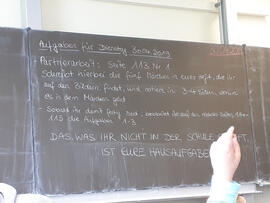 Aufgaben für Dienstag
Partnerarbeit: Seite 113 Nr. 1
Schreibt hierbei die fünf Märchen in euer Heft, die ihr
auf den Bildern findet, und notiert in 3-4 Sätzen, worum
es in dem Märchen geht
- Sobald ihr damit fertig seid, bearbeitet ihr auf den Seiten 114 +
115 die Aufgaben 1-3
DAS, WAS IHR NICHT IN DER SCHULE
IST EURE HAUSAUFGABE